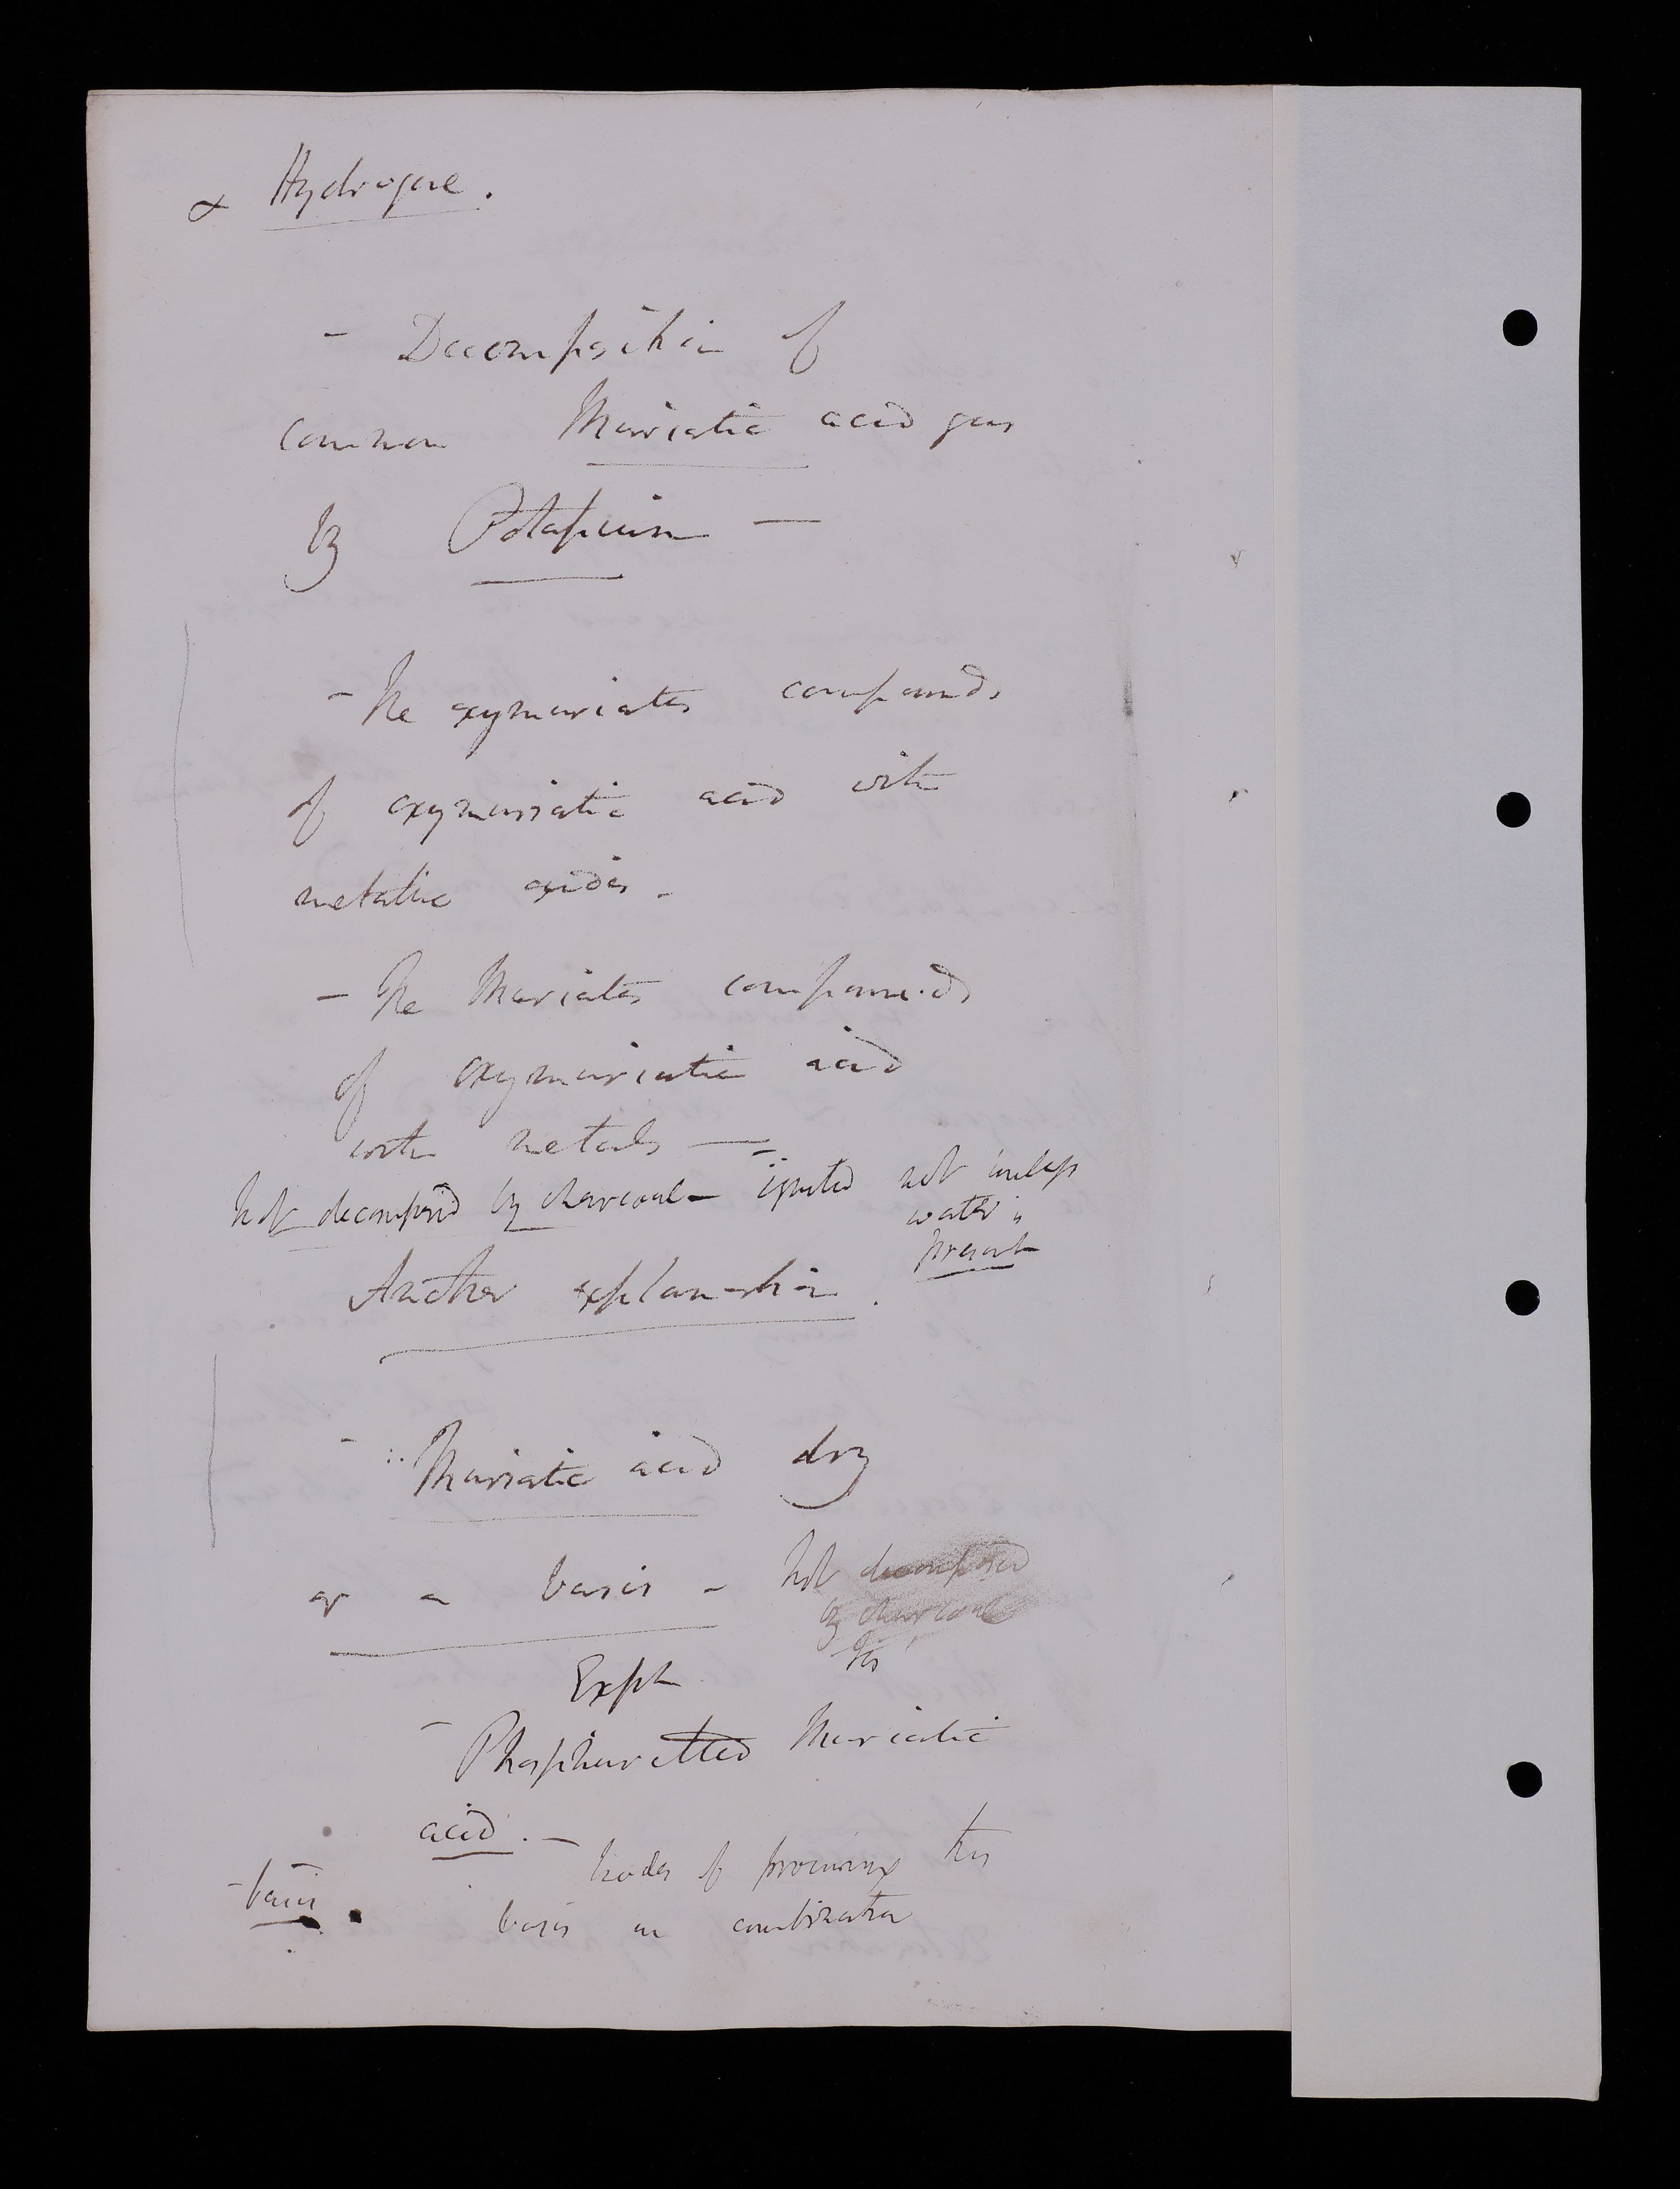 & Hydrogene.
- Decomposition of
common Muriatic acid gas
by Potassium -
- The oxymuriates compounds
of oxymuriatic acid with
metallic oxides -
- The Muriates compounds
of oxymuriatic acid
with metals -
Not decomposed by charcoal - ignited not unless
water is
present
Another explanation.
- Muriatic acid dry
or a basis - not decomposed
by charcoal
Expt
- Phosphuretted Muriatic
acid. -
modes of procuring this
- basis
basis in combination